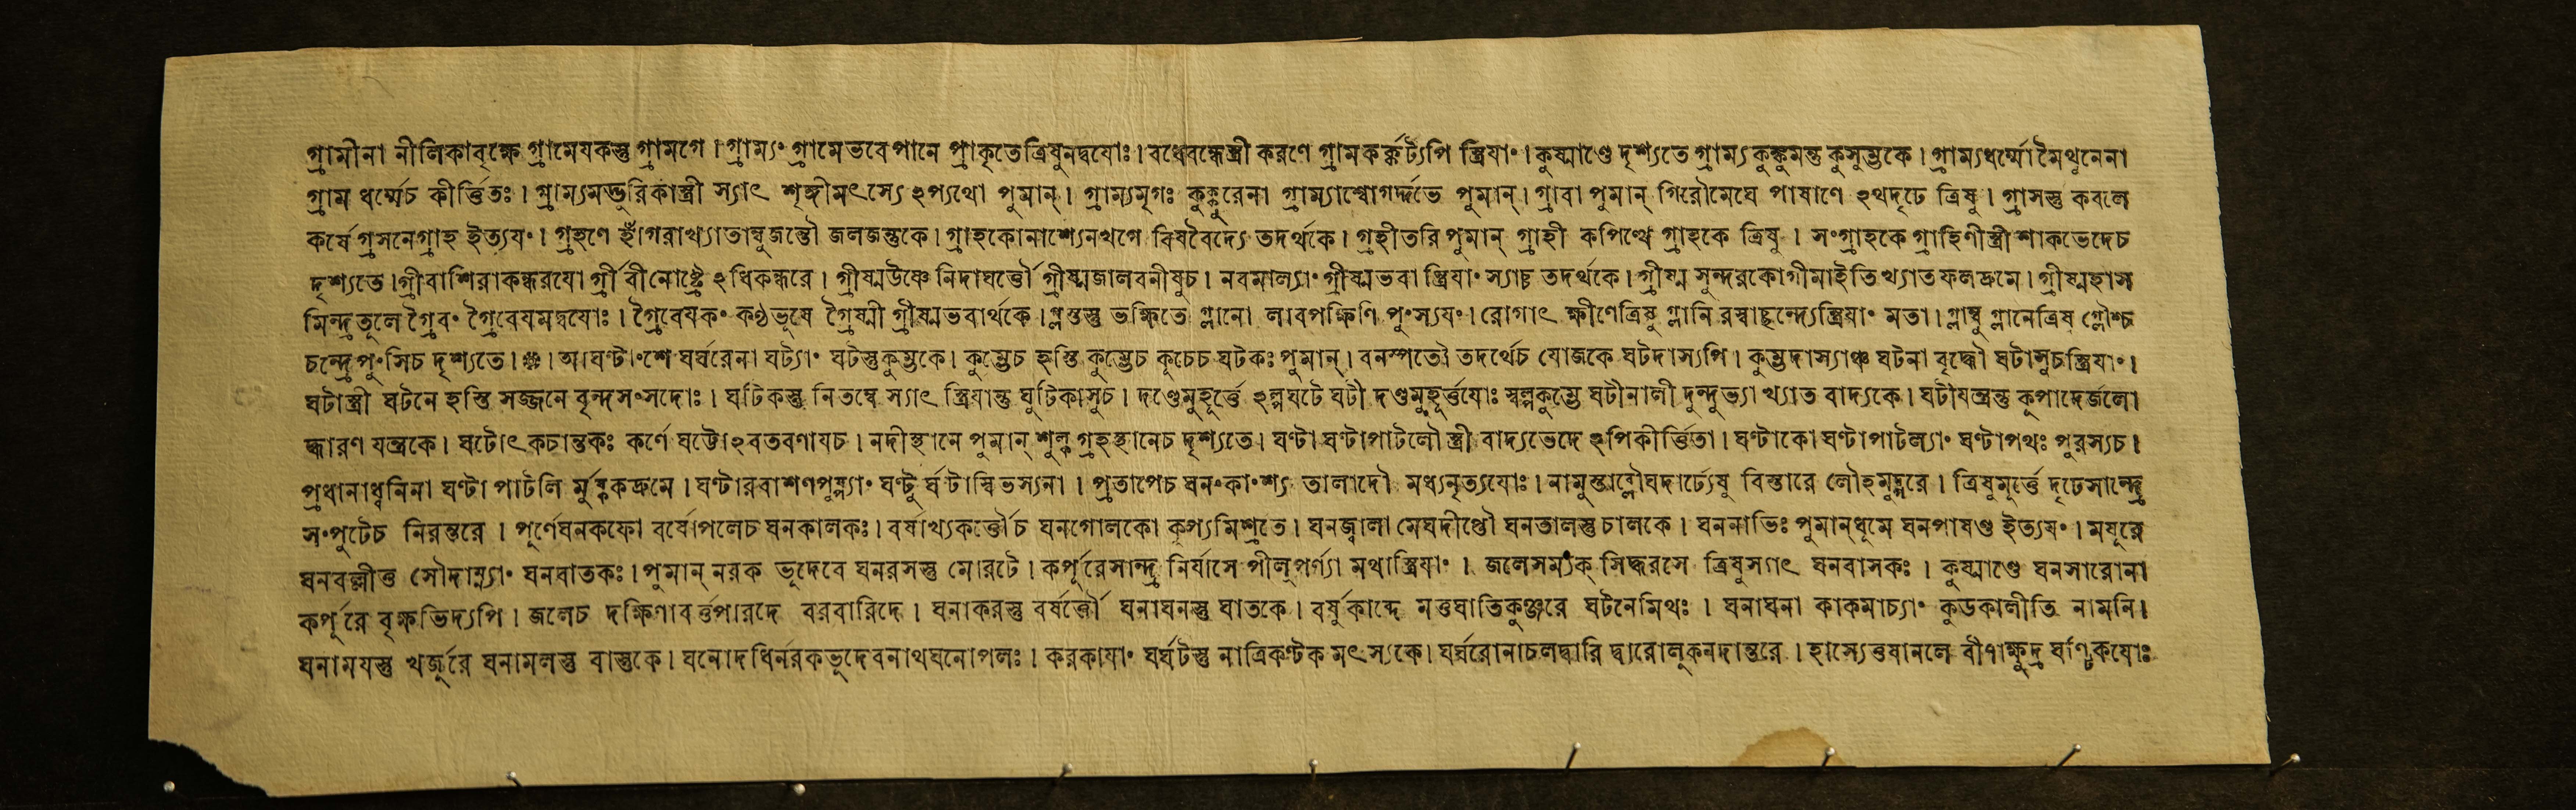 গ্রামীনা নীলিকাবৃক্ষে গ্রামেযকস্তু গ্রামগে । গ্রাম্যং গ্রামেভবেপানে প্রাকৃতেত্রিষুনদ্বযোঃ । বধেবন্ধেস্ত্রী করণে গ্রামকর্ক্কট্যপি স্ত্রিযাং । কুষ্মাণ্ডে দৃশ্যতে গ্রাম্যকুঙ্কুমন্তু কুসুম্ভকে । গ্রাম্যধর্ম্মো মৈথুনেনা
গ্রাম ধর্ম্মেচ কীর্ত্তিতঃ । গ্রাম্যমদ্গুরিকাস্ত্রী স্যাৎ শৃঙ্গীমৎস্যে ঽপ্যথো পুমান্ । গ্রাম্যমৃগঃ কুক্কুরেনা গ্রাম্যাশ্বোগর্দ্দভে পুমান্ । গ্রাবা পুমান্ গিরৌমেঘে পাষাণে ঽথদৃঢে ত্রিষু । গ্রাসস্তু কবলে
কর্ষে গ্রসনেগ্রাহ ইত্যযং । গ্রহণে হাঁগরাখ্যাতাম্বুজন্তৌ জলজন্তুকে । গ্রাহকোনাশ্যেনখগে বিষবৈদ্যে তদর্থকে । গ্রহীতরি পুমান্ গ্রাহী কপিত্থে গ্রাহকে ত্রিষু । সংগ্রাহকে গ্রাহিণীস্ত্রী শাকভেদেচ
দৃশ্যতে । গ্রীবাশিরাকন্ধরযো গ্রীবীনোষ্ট্রে ঽধিকন্ধরে । গ্রীষ্মউষ্ণে নিদাঘর্ত্তৌ গ্রীষ্মজালবনীষুচ । নবমাল্যাং গ্রীষ্মভবা স্ত্রিযাং স্যাচ্চ তদর্থকে । গ্রীষ্ম সুন্দরকোগীমাইতিখ্যাতফলদ্রুমে । গ্রীষ্মহাস
মিন্দ্রতূলে গ্রৈবং গ্রৈবেযমদ্বযোঃ । গ্রৈবেযকং কণ্ঠভূষে গ্রৈষ্মী গ্রীষ্মভবার্থকে । গ্লস্তস্তু ভক্ষিতে গ্লানো লাবপক্ষিণি পুংস্যযং । রোগাৎ ক্ষীণেত্রিষু গ্লানি রস্বাচ্ছন্দ্যেস্ত্রিযাং মতা । গ্লাস্নু গ্লানেত্রিষু গ্লৌশ্চ
চন্দ্রে পুংসিচ দৃশ্যতে । আঘণ্টাংশে ঘর্ঘরেনা ঘট্যাং ঘটস্তুকুম্ভকে । কুম্ভেচ হস্তি কুম্ভেচ কূচেচ ঘটকঃ পুমান্ । বনস্পতৌ তদর্থেচ যোজকে ঘটদাস্যপি । কুম্ভদাস্যাঞ্চ ঘটনা বৃদ্ধৌ ঘটাসুচস্ত্রিযাং ।
ঘটাস্ত্রী ঘটনে হস্তি সজ্জনে বৃন্দসংসদোঃ । ঘটিকস্তু নিতম্বে স্যাৎ স্ত্রিযান্তু ঘুটিকাসুচ । দণ্ডেমুহূর্ত্তে ঽল্পঘটে ঘটী দণ্ডমুহূর্ত্তযোঃ স্বল্পকুম্ভে ঘটীনালী দুন্দুভ্যাখ্যাত বাদ্যকে । ঘটীযন্ত্রন্তু কূপাদের্জলো
দ্ধারণ যন্ত্রকে । ঘটোৎকচান্তকঃ কর্ণে ঘট্টোঽবতরণাযচ । নদীস্থানে পুমান্ শুল্ক গ্রহস্থানেচ দৃশ্যতে । ঘণ্টা ঘণ্টাপাটলৌ স্ত্রী বাদ্যভেদে ঽপিকীর্ত্তিতা । ঘণ্টাকো ঘণ্টাপাটল্যাং ঘণ্টাপথঃ পুরস্যচ ।
প্রধানাধ্বনিনা ঘণ্টা পাটলি র্মুষ্ককদ্রুমে । ঘণ্টারবাশণপুষ্প্যাং প্রতাপেচ ঘনংকাংশ্য তালাদৌ মধ্যনৃত্যযোঃ । নামুস্তাব্দৌঘদার্ঢ্যেষু বিস্তারে লৌহমুদ্গরে । ত্রিষুমূর্ত্তে দৃঢেসান্দ্রে
সংপুটেচ নিরন্তরে । পূর্ণেঘনকফো বর্ষোপলেচ ঘনকালকঃ । বর্ষাখ্যকর্ত্তৌচ ঘনগোলকো রূপ্যমিশ্রতে । ঘনজ্বালা মেঘদীপ্তৌ ঘনতালস্তু চালকে । ঘননাভিঃ পুমান্ধূমে ঘনপাষণ্ড ইত্যযং । মযূরে
ঘনবল্লীত্ত সৌদাম্ন্যাং ঘনবাতকঃ । পুমান্ নরক ভূদেবে ঘনরসস্তু মোরটে । কর্পূরেসান্দ্র নির্যাসে পীলুপর্ণ্যা মথাস্ত্রিযাং । জলেসম্যক্ সিদ্ধরসে ত্রিষুস্যাৎ ঘনবাসকঃ । কুষ্মাণ্ডে ঘনসারোনা
কর্পূরে বৃক্ষভিদ্যপি । জলেচ দক্ষিণাবর্ত্তপারদে বরবারিদে । ঘনাকরস্তু বর্ষর্ত্তৌ ঘনাঘনস্তু ঘাতকে । বর্ষুকাব্দে মত্তঘাতিকুঞ্জরে ঘটনেমিথঃ । ঘনাঘনা কাকমাচ্যাং কুডকালীতি নামনি ।
ঘনামযস্তু খর্জূরে ঘনামলস্তু বাস্তুকে । ঘনোদধির্নরকভূদেবনাথঘনোপলঃ । করকাযাং ঘর্ঘটস্তু নাত্রিকণ্টক মৎস্যকে । ঘর্ঘরোনাচলদ্বারি দ্বারোলূকনদান্তরে । হাস্যেত্তষানলে বীণাক্ষুদ্র ঘণ্টিকযোঃ